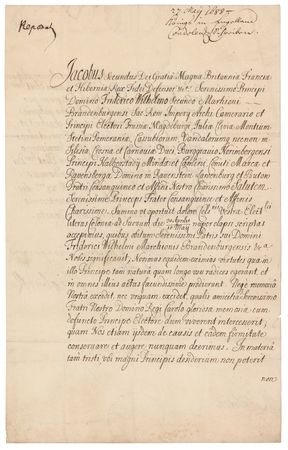 27 May 1688
König in Engelland
Jacobus Secundus Dei Gratia Magnæ Britanniæ Franciæ
et Hiberniæ Rex Fidei Defensor &c. Serenissimo Principi
Domino Friderico Wilhelmo Secundo Marchioni
Brandenburgensi Sac. Rom. Imperij Archi Camerario et
Principi Electori Prussiæ, Magdeburgi, Juliæ, Cliviæ, Montium
Stetini Pomeraniæ, Cassubiorum, Vandalorumq nec non in
Silesia, Crosnæ et Carnoviæ Duci Burggravio Norimbergensi
Principi Halberstadij Mindæ et Camini, Comiti Marcæ et
Ravensbergæ Domino in Ravenstein Lawenberg et Butow
Fratri Consanguineo et Affini Nostro Charissimo Salutem.
Serenissime Princeps Frater Consanguinee et Affinis
Charissime. Summo ut oportuit dolore
literas
accepimus, quibus obitum Serenissimi Patris sui Domini
Friderici Wilhelmi Marchionis Brandenburgensis &c.
Nobis significavit; Novimus equidem eximias virtutes quas in
illo Principe tam natura quam longo usu radices egerant, et
in omnes illius actus faciendisque prodierant. Neque memoria
Nostra excidit, nec unquam excidet, qualis amicitia Serenissimo
Fratri Nostro Domino Regi Carolo gloriosæ memoriæ cum
defuncto Principe Electore dum viverent intercesserit;
quam Nos etiam ijsdem de causis et eadem firmitate
conservare et augere nunquam destitimus. In materia
tam tristi vos magni Principis desiderium non poterit
non